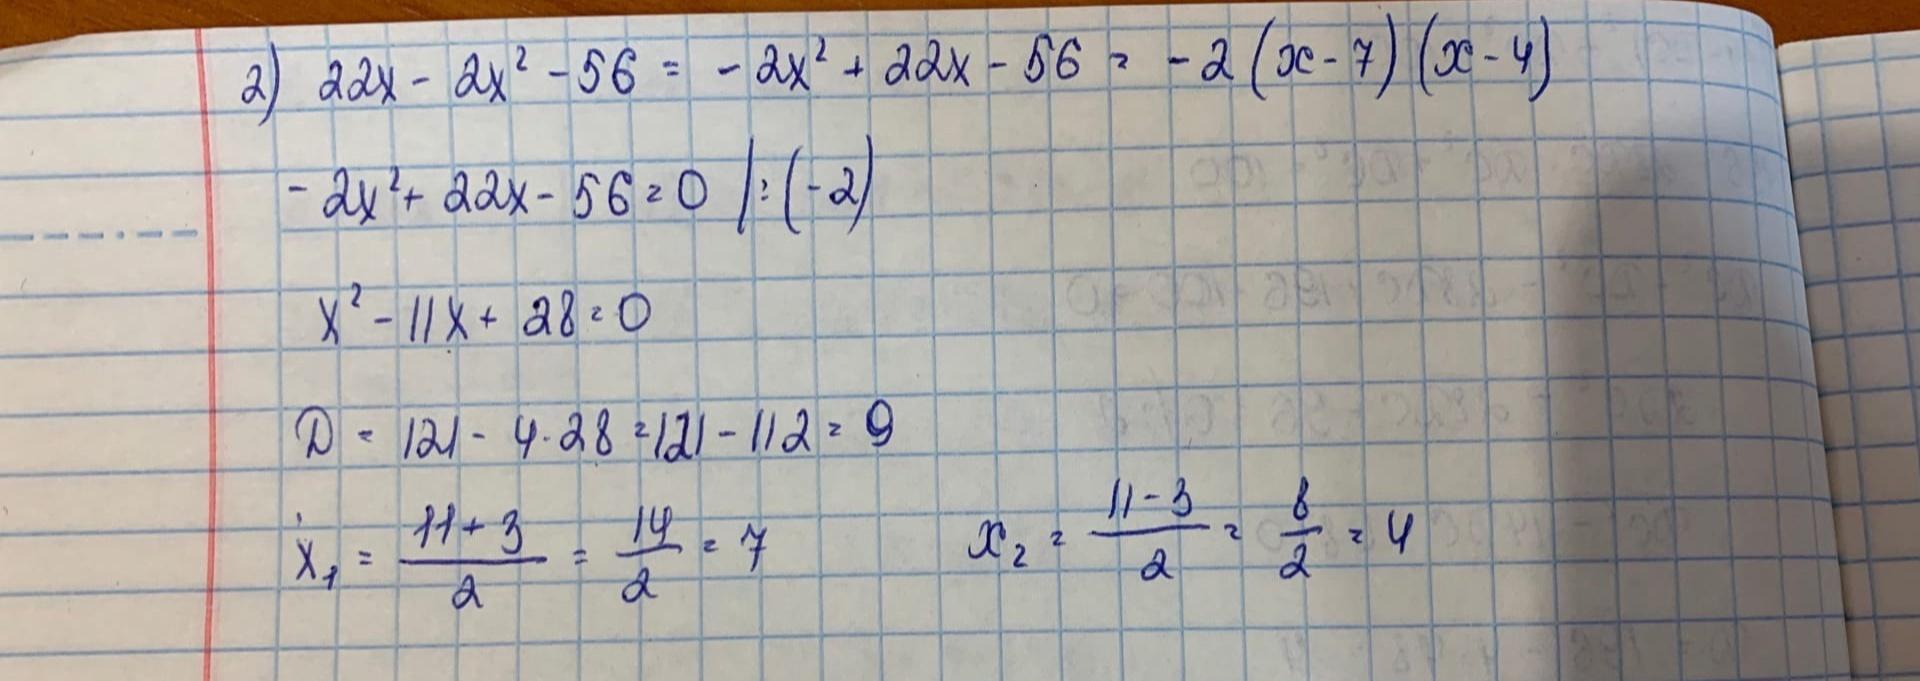 2) 22x - 2x² - 56 = - 2x² + 22x - 56 = - 2 (x - 7) (x - 4)
- 2x² + 22x - 56 = 0 | : (-2)
x² - 11x + 28 = 0
D = 121 - 4 · 28 = 121 - 112 = 9
x₁ = (11 + 3)/2 = 14/2 = 7 x₂ = (11 - 3)/2 = 8/2 = 4